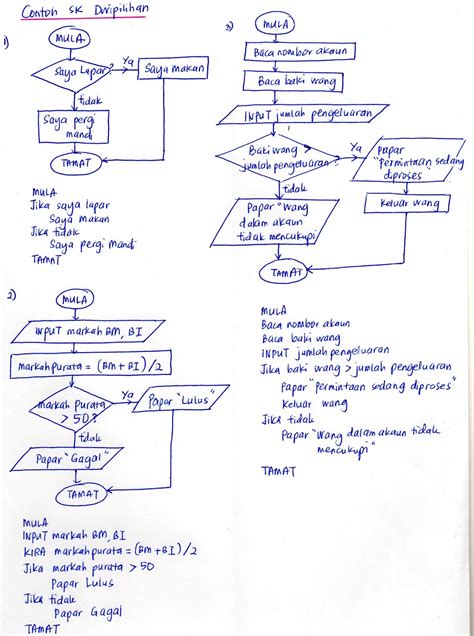 Contoh SK Dwipilihan
1)
MULA
Saya lapar?
Ya
Saya makan
tidak
Saya pergi
mandi
TAMAT
MULA
Jika saya lapar
Saya makan
Jika tidak
Saya pergi mandi
TAMAT
2)
MULA
INPUT markah BM, BI
markah purata = (BM + BI)/2
markah purata
> 50?
Ya
Papar "Lulus"
tidak
Papar "Gagal"
TAMAT
MULA
INPUT markah BM, BI
KIRA markah purata = (BM + BI)/2
Jika markah purata > 50
Papar Lulus
Jika tidak
Papar Gagal
TAMAT
3)
MULA
Baca nombor akaun
Baca baki wang
INPUT jumlah pengeluaran
Baki wang >
jumlah pengeluaran?
Ya
Papar
"Permintaan sedang
diproses"
Keluar wang
tidak
Papar "Wang
dalam akaun
tidak mencukupi
TAMAT
MULA
Baca nombor akaun
Baca baki wang
INPUT jumlah pengeluaran
Jika baki wang > jumlah pengeluaran
Papar "Permintaan sedang diproses"
Keluar wang
Jika tidak
Papar "Wang dalam akaun tidak
mencukupi"
TAMAT